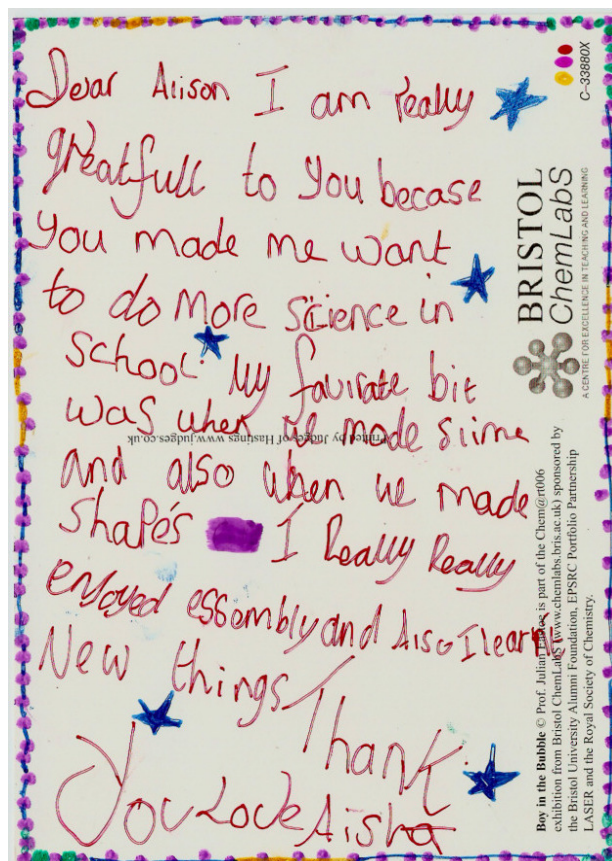 Dear Alison I am really
greatfull to you becase
you made me want
to do more science in
school. My favirate bit
was when we made slime
and also when we made
shapes I Really Really
enjoyed essembly and Also I learnt
New things Thank
you Love Aisha
C-33880X
BRISTOL
ChemLabS
A CENTRE FOR EXCELLENCE IN TEACHING AND LEARNING
Printed by Judges of Hastings www.judges.co.uk
Boy in the Bubble © Prof. Julian Eastoe is part of the Chem@rt006
exhibition from Bristol ChemLabS (www.chemlabs.bris.ac.uk) sponsored by
the Bristol University Alumni Foundation, EPSRC Portfolio Partnership
LASER and the Royal Society of Chemistry.